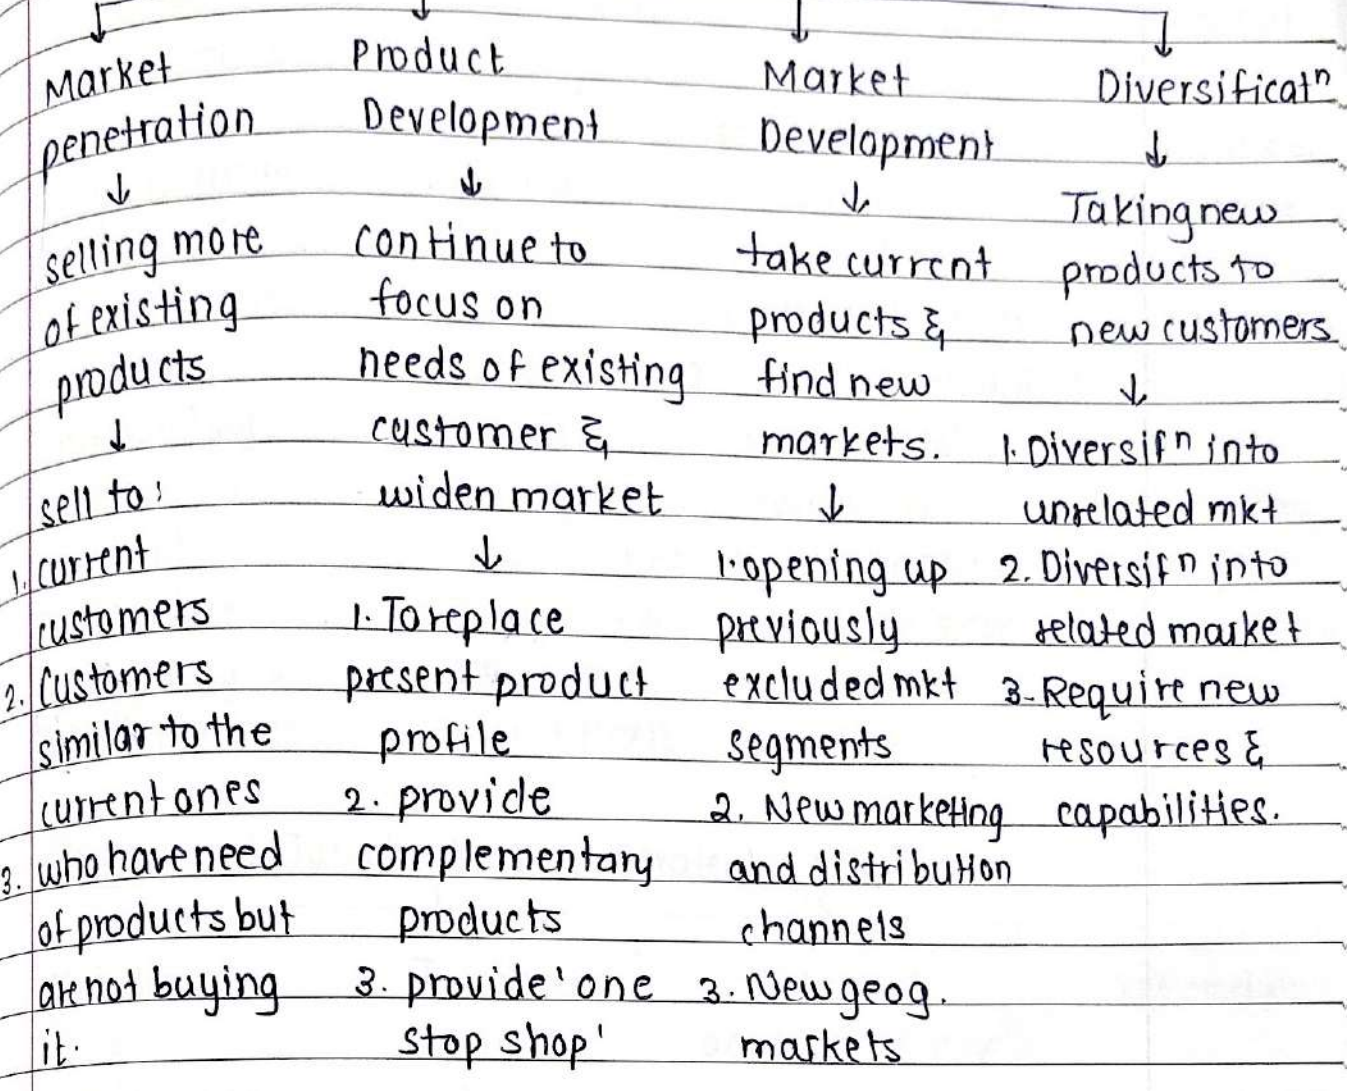 Market
penetration
↓
selling more
of existing
products
↓
sell to:
1. current
customers
2. customers
similar to the
current ones
3. who have need
of products but
are not buying
it.
Product
Development
↓
continue to
focus on
needs of existing
customer &
widen market
↓
1. To replace
present product
profile
2. provide
complementary
products
3. provide 'one
stop shop'
Market
Development
↓
take current
products &
find new
markets.
↓
1. opening up
previously
excluded mkt
segments
2. New marketing
and distribution
channels
3. New geog.
markets
Diversificatⁿ
↓
Taking new
products to
new customers
↓
1. Diversifⁿ into
unrelated mkt
2. Diversifⁿ into
related market
3. Require new
resources &
capabilities.